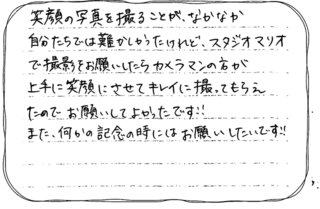 笑顔の写真を撮ることが、なかなか
自分たちでは難かしかったけれど、スタジオマリオ
で撮影をお願いしたらカメラマンの方が
上手に笑顔にさせてキレイに撮ってもらえ
たのでお願いしてよかったです!!
また、何かの記念の時にはお願いしたいです!!